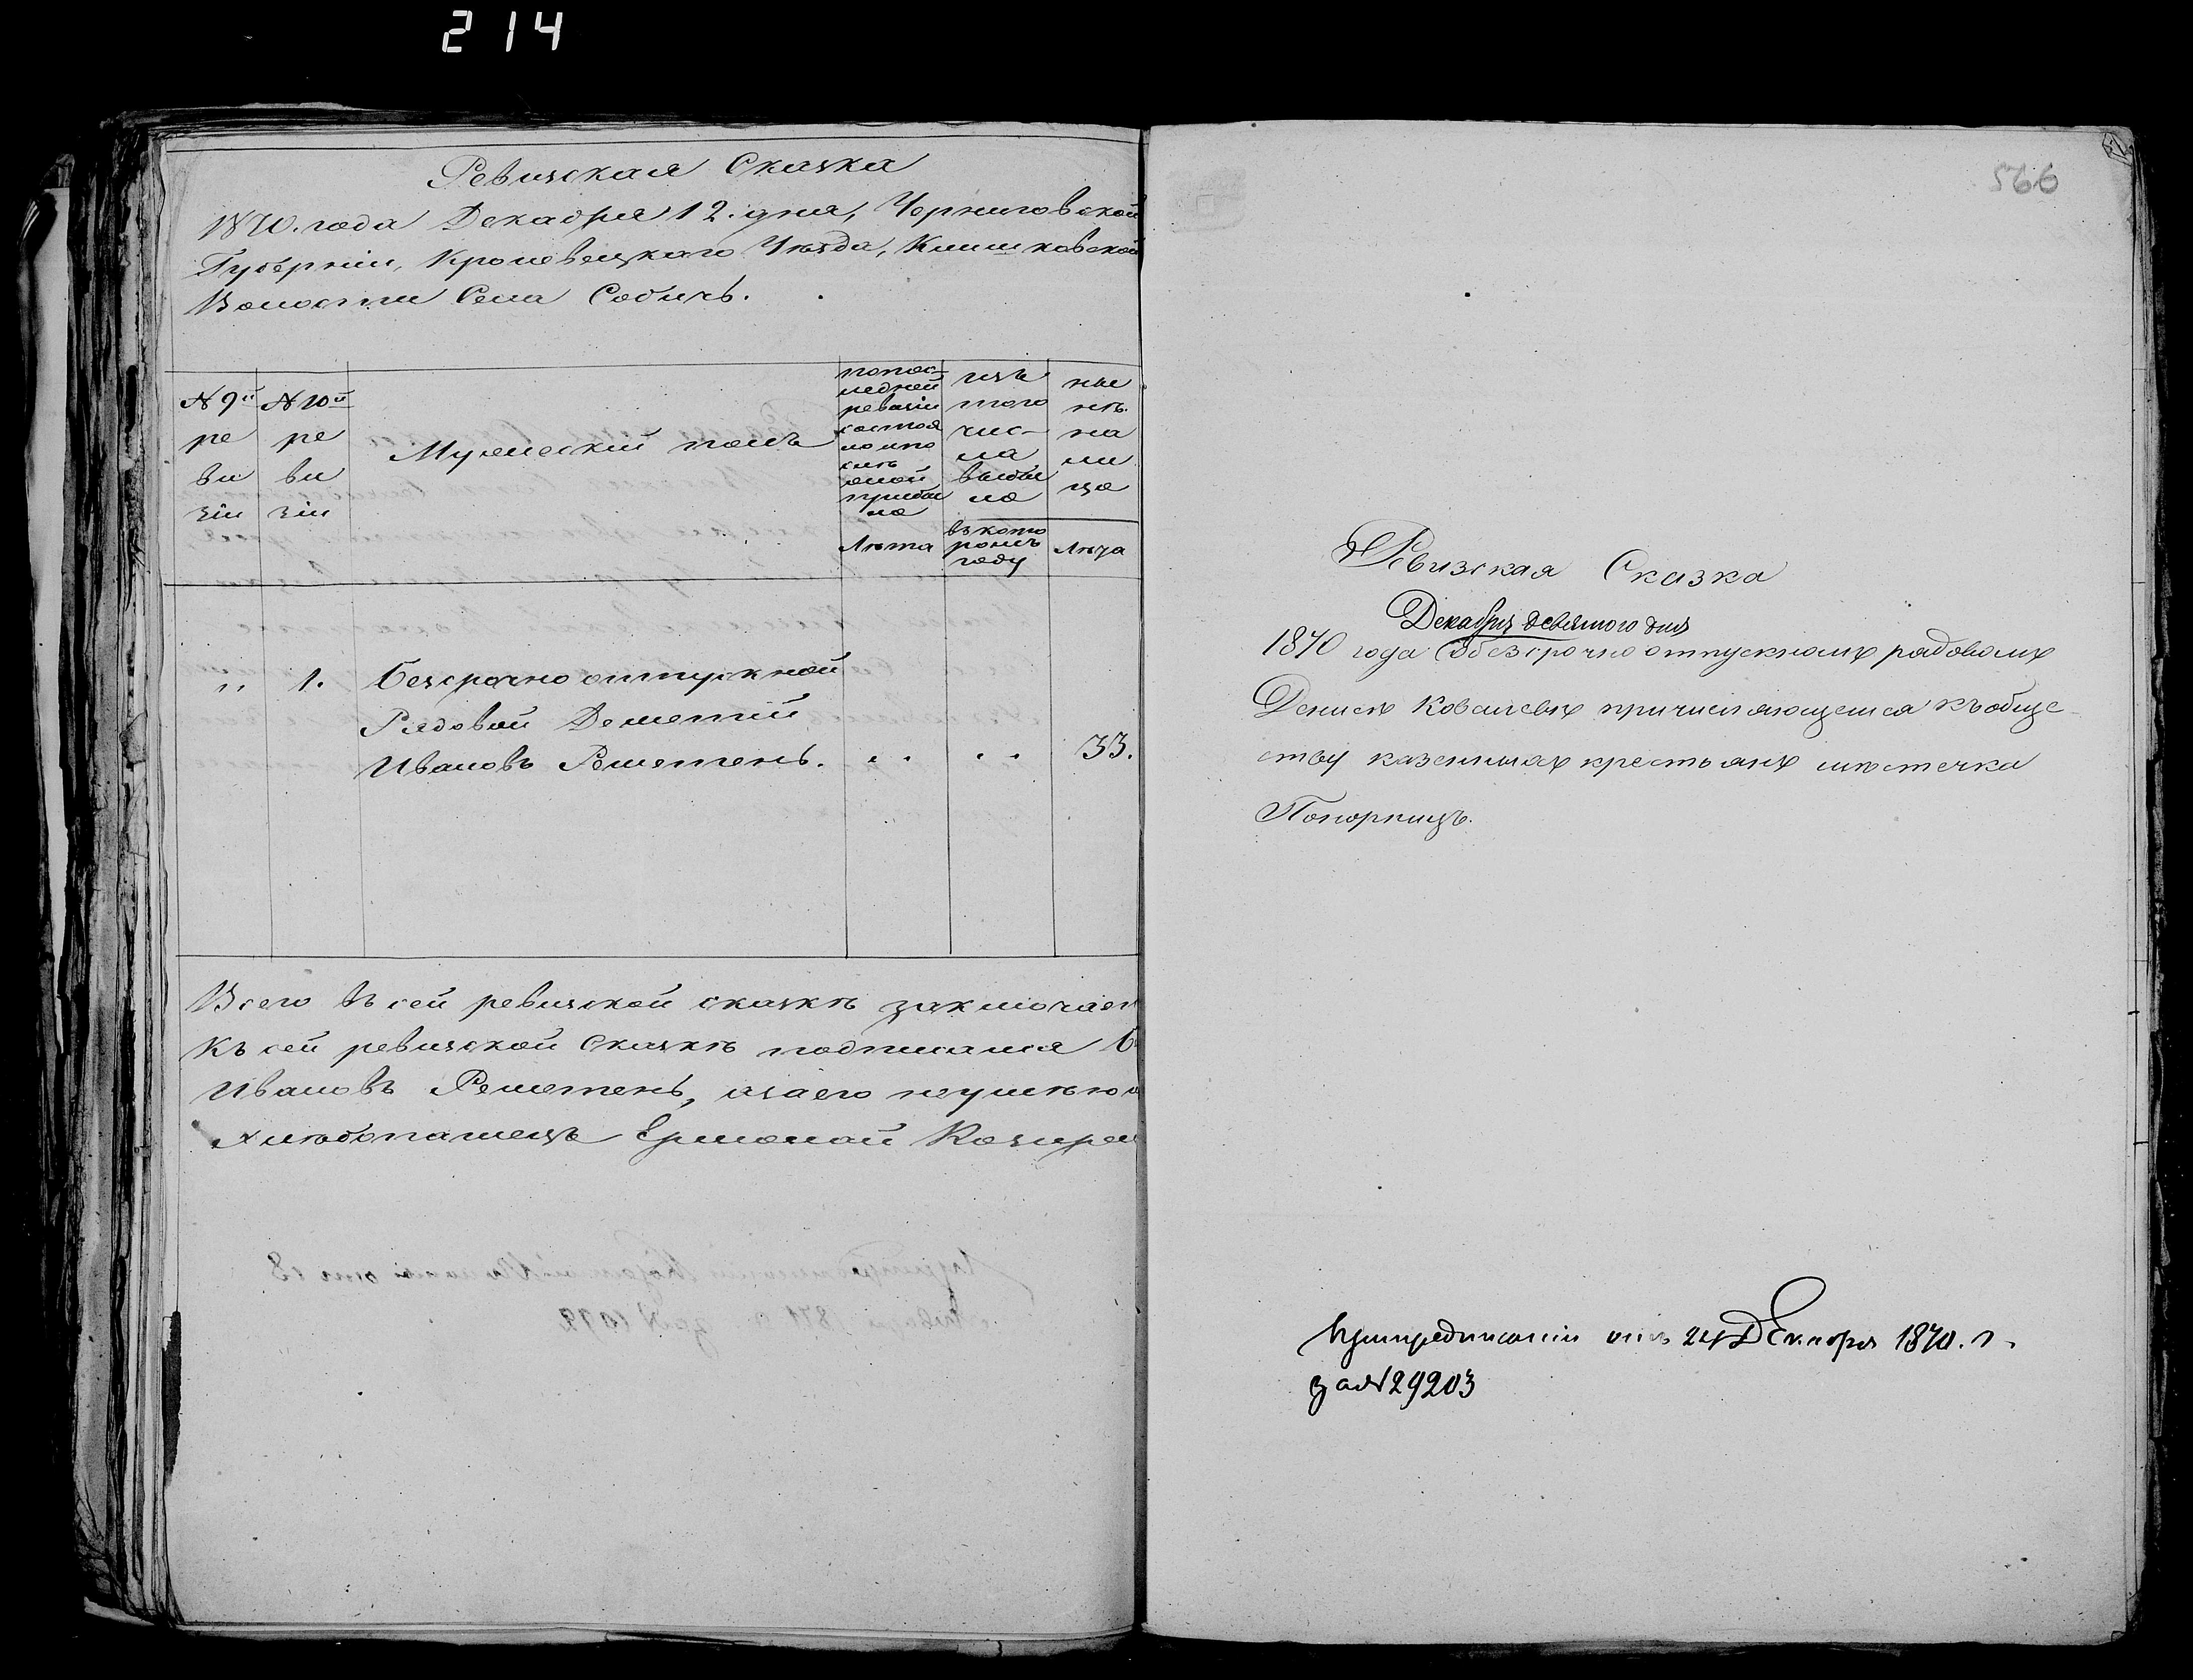 214
Ревизская Сказка
1870. года Декабря 12. дня, Черниговской
Губерніи, Кролевецкаго Уѣзда, Клишковской
Волости Села Собичъ.
№ 9й ре ви зіи
№ 10й ре ви зіи
Мужескій полъ
по пос-ледней ревизіи состоя ло и по слѣ оной прибы ло
Лѣта
изъ того чис-ла выбы ло
въ кото ромъ году
ны нѣ на ли цо
Лѣта
" 1. безсрочно отпускной
Рядовой Дементій
Ивановъ Решетень. " " 33.
Всего въ сей ревизской сказкѣ заключает
Къ сей ревизской сказкѣ подписался б
Ивановъ Решетень, а за его неумѣю
хлѣбопашецъ Ермолай
566
Ревизская Сказка
Декабря девятого дня
1870 года о безсрочно отпускномъ рядовомъ
Денисѣ Ковалевѣ причисляющемся къ обще-
ству казенныхъ крестьянъ мѣстечка
Понорницъ.
При предписаніи отъ 24 Декабря 1870. г.
за № 29203